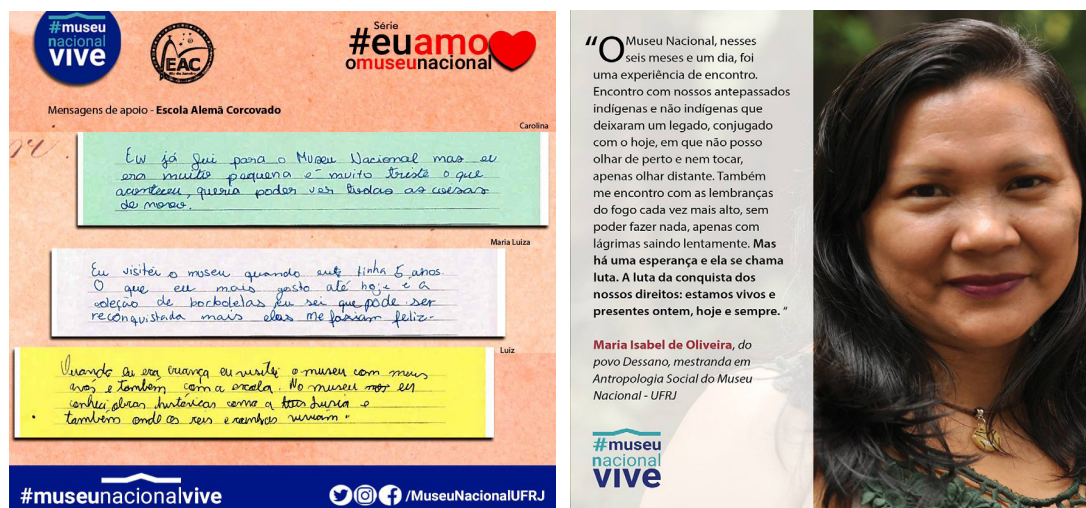 #museu
nacional
vive
EAC
Rio de Janeiro
Série
#euamo
omuseunacional
Mensagens de apoio - Escola Alemã Corcovado
Carolina
Eu já fui para o Museu Nacional mas eu
era muito pequena e muito triste o que
aconteceu, queria poder ver todas as coisas
de novo.
Maria Luiza
Eu visitei o museu quando tinha 5 anos.
O que eu mais gosto até hoje é a
coleção de borboletas eu sei que pode ser
reconquistada mais elas me faziam feliz.
Luiz
Quando eu era criança eu visitei o museu com meus
avós e também com a escola. No museu eu
conheci obras históricas como a Luzia e
também onde os reis e rainhas viviam.
#museunacionalvive
/MuseuNacionalUFRJ
“O Museu Nacional, nesses
seis meses e um dia, foi
uma experiência de encontro.
Encontro com nossos antepassados
indígenas e não indígenas que
deixaram um legado, conjugado
com o hoje, em que não posso
olhar de perto e nem tocar,
apenas olhar distante. Também
me encontro com as lembranças
do fogo cada vez mais alto, sem
poder fazer nada, apenas com
lágrimas saindo lentamente. Mas
há uma esperança e ela se chama
luta. A luta da conquista dos
nossos direitos: estamos vivos e
presentes ontem, hoje e sempre. ”
Maria Isabel de Oliveira, do
povo Dessano, mestranda em
Antropologia Social do Museu
Nacional - UFRJ
#museu
nacional
vive